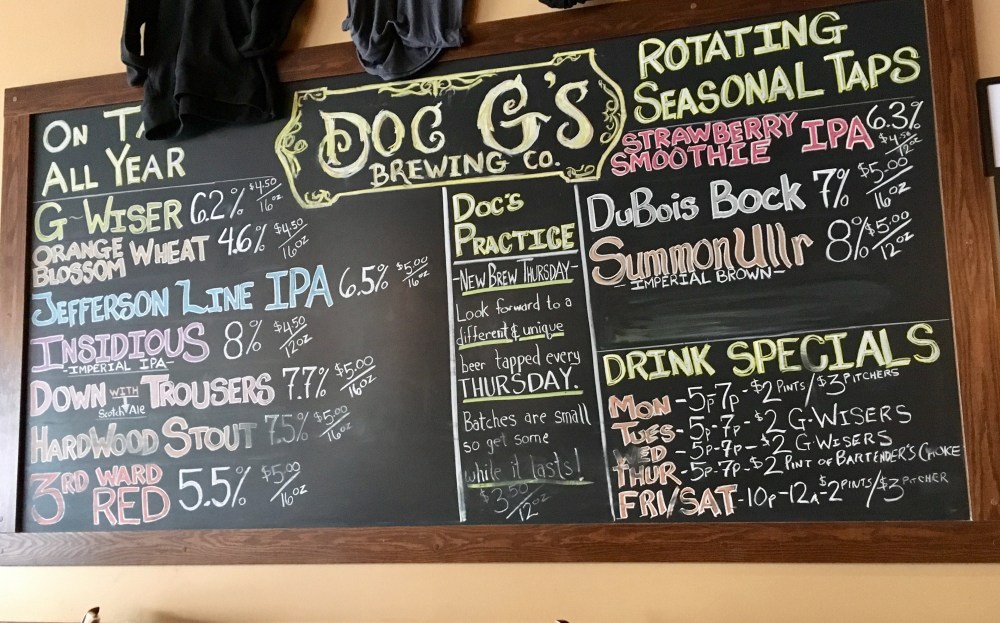 DOC G'S
BREWING CO.
ON TA
ALL YEAR
G-WISER 6.2% $4.50/16oz
ORANGE BLOSSOM WHEAT 4.6% $4.50/16oz
JEFFERSON LINE IPA 6.5% $5.00/16oz
INSIDIOUS 8% $4.50/12oz
-IMPERIAL IPA-
DOWN WITH TROUSERS 7.7% $5.00/16oz
Scotch Ale
HARDWOOD STOUT 7.5% $5.00/16oz
3RD WARD RED 5.5% $5.00/16oz
DOC'S
PRACTICE
-NEW BREW THURSDAY-
Look forward to a
different & unique
beer tapped every
THURSDAY.
Batches are small
so get some
while it lasts!
$3.50/12oz
ROTATING
SEASONAL TAPS
STRAWBERRY SMOOTHIE IPA 6.3% $4.50/12oz
DUBOIS BOCK 7% $5.00/16oz
SummonUllr 8% $5.00/12oz
-IMPERIAL BROWN-
DRINK SPECIALS
MON-5p-7p-$2 PINTS/$3 PITCHERS
TUES-5p-7p-$2 G-WISERS
WED-5p-7p-$2 G-WISERS
THUR-5p-7p-$2 PINT OF BARTENDER'S CHOICE
FRI/SAT-10p-12A-$2 PINTS/$3 PITCHER